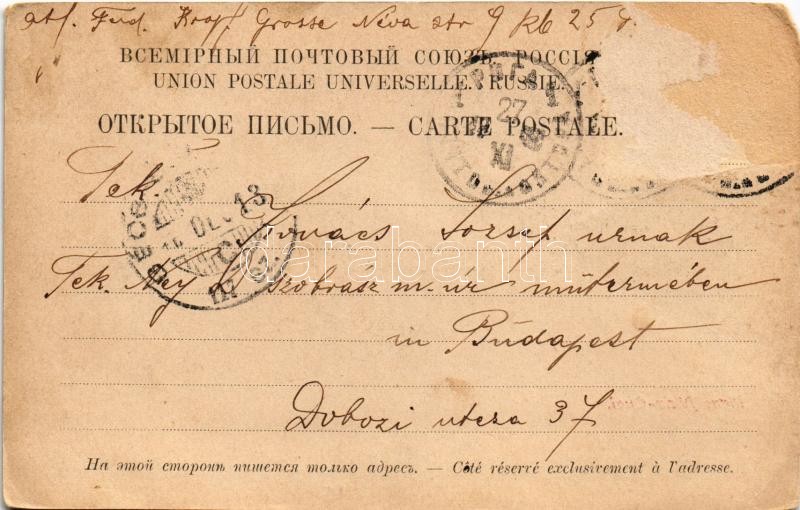 Ferd. Kropf Grosse Neva str 9 kb 25
ВСЕМІРНЫЙ ПОЧТОВЫЙ СОЮЗЪ. РОССІЯ
UNION POSTALE UNIVERSELLE. RUSSIE.
ОТКРЫТОЕ ПИСЬМО. — CARTE POSTALE.
РИГА
27
XI
DEC 13
Tek.
Kovács József urnak
Tek. Ney szobrász m. úr műtermében
in Budapest
Dobozi utcza 37
darabanth
На этой сторонѣ пишется только адресъ. — Côté réservé exclusivement à l'adresse.